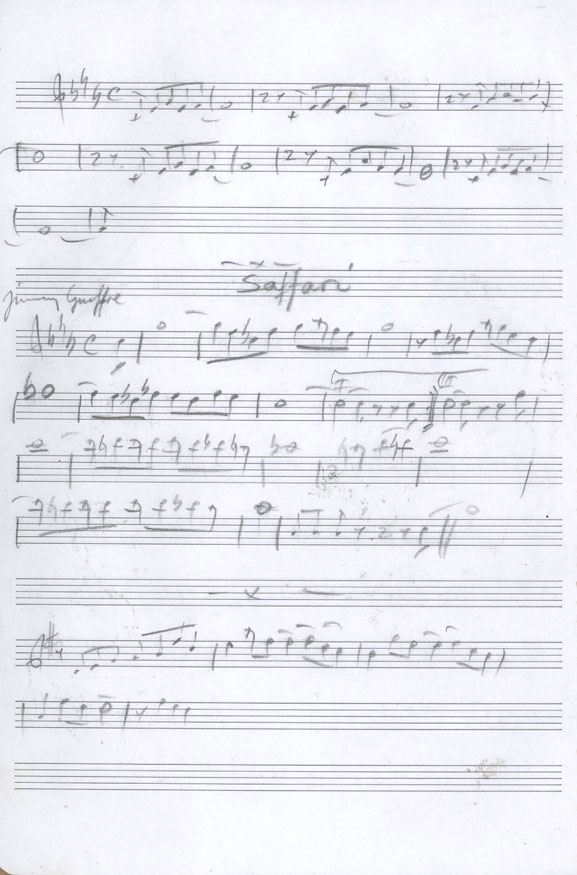 Saffari
Jimmy Giuffre